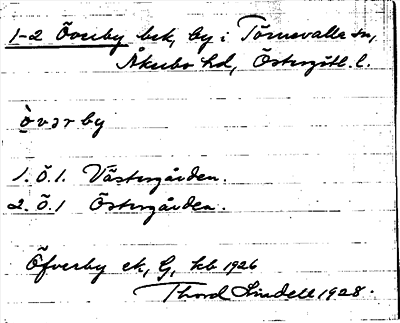 1-2 Överby bek, by i Törnevalla sn,
Åkerbo hd, Östergötl. l.
ò̤vərby
1. Ö.1. Västergården.
2. Ö.1 Östergården.
Öfverby ek, G, kb 1926
Thord Lindell 1928.